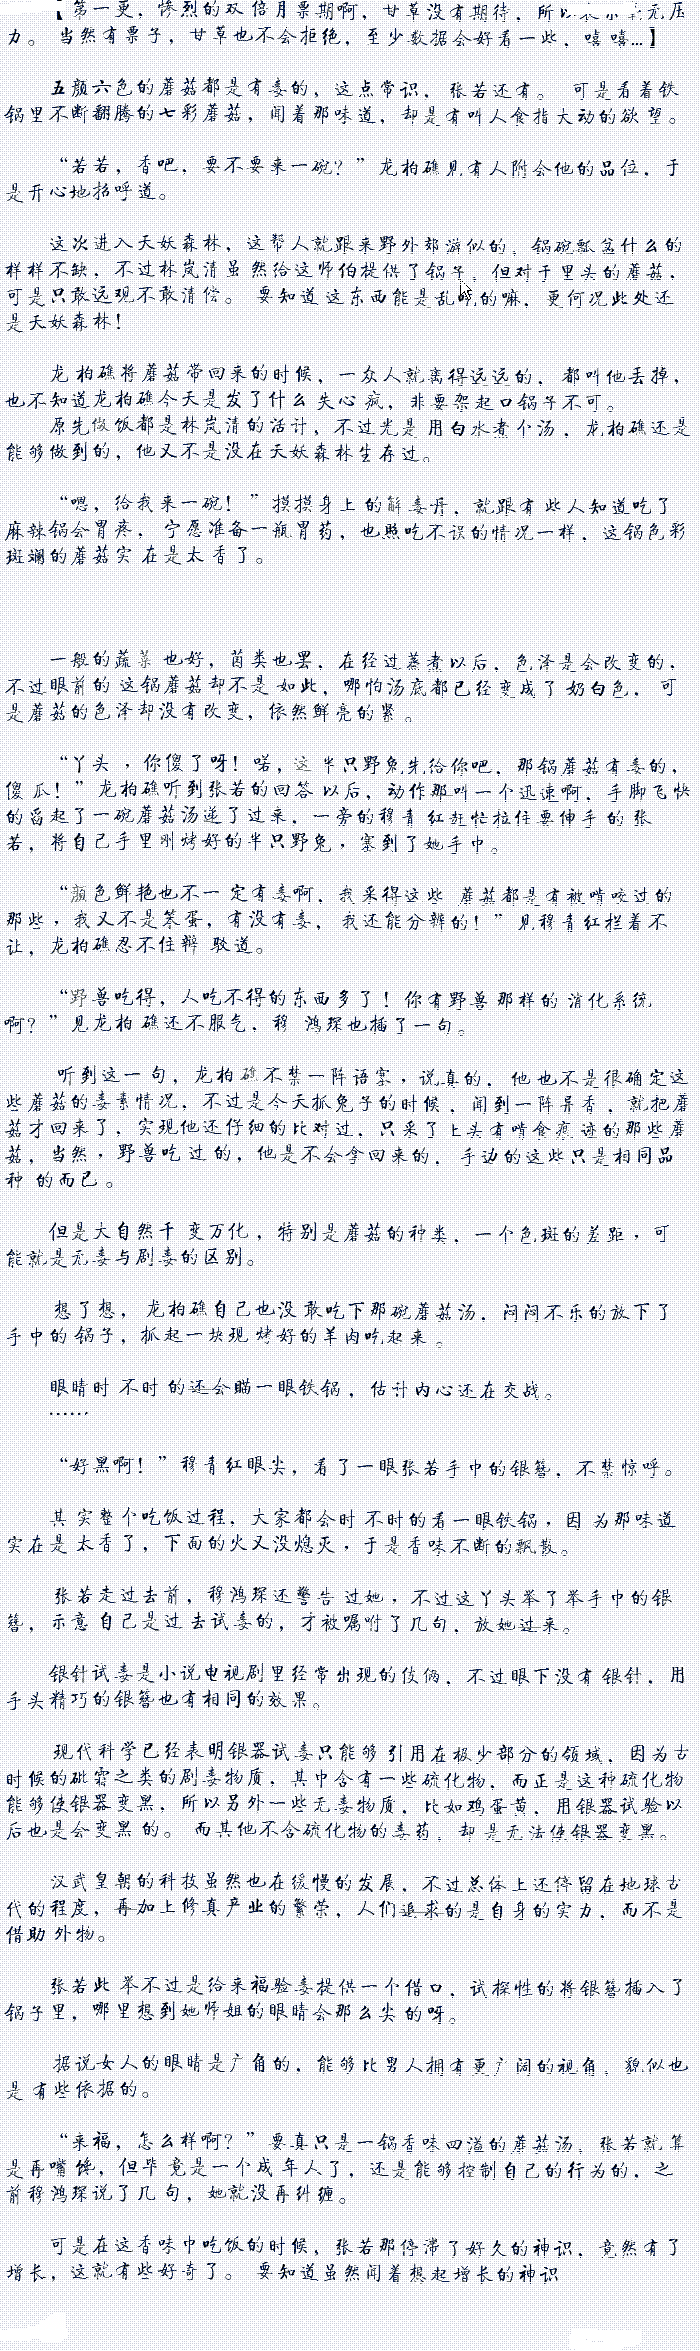 【第一更，惨烈的双倍月票期啊，甘草没有期待，所以表示毫无压
力。 当然有票子，甘草也不会拒绝，至少数据会好看一些，嘻嘻...】
五颜六色的蘑菇都是有毒的，这点常识，张若还有。 可是看着铁
锅里不断翻腾的七彩蘑菇，闻着那味道，却是有叫人食指大动的欲望。
“若若，香吧，要不要来一碗？”龙柏礁见有人附会他的品位，于
是开心地招呼道。
这次进入天妖森林，这帮人就跟来野外郊游似的，锅碗瓢盆什么的
样样不缺，不过林岚清虽然给这师伯提供了锅子，但对于里头的蘑菇，
可是只敢远观不敢清偿。 要知道这东西能是乱吃的嘛，更何况此处还
是天妖森林！
龙柏礁将蘑菇带回来的时候，一众人就离得远远的，都叫他丢掉，
也不知道龙柏礁今天是发了什么失心疯，非要架起口锅子不可。
原先做饭都是林岚清的活计，不过光是用白水煮个汤，龙柏礁还是
能够做到的，他又不是没在天妖森林生存过。
“嗯，给我来一碗！”摸摸身上的解毒丹，就跟有些人知道吃了
麻辣锅会胃疼，宁愿准备一瓶胃药，也照吃不误的情况一样，这锅色彩
斑斓的蘑菇实在是太香了。
一般的蔬菜也好，茵类也罢，在经过蒸煮以后，色泽是会改变的，
不过眼前的这锅蘑菇却不是如此，哪怕汤底都已经变成了奶白色，可
是蘑菇的色泽却没有改变，依然鲜亮的紧。
“丫头，你傻了呀！喏，这半只野兔先给你吧，那锅蘑菇有毒的，
傻瓜！”龙柏礁听到张若的回答以后，动作那叫一个迅速啊，手脚飞快
的舀起了一碗蘑菇汤递了过来，一旁的穆青红赶忙拉住要伸手的张
若，将自己手里刚烤好的半只野兔，塞到了她手中。
“颜色鲜艳也不一定有毒啊，我采得这些蘑菇都是有被啃咬过的
那些，我又不是笨蛋，有没有毒，我还能分辨的！”见穆青红拦着不
让，龙柏礁忍不住辩驳道。
“野兽吃得，人吃不得的东西多了！你有野兽那样的消化系统
啊？”见龙柏礁还不服气，穆鸿琛也插了一句。
听到这一句，龙柏礁不禁一阵语塞，说真的，他也不是很确定这
些蘑菇的毒素情况，不过是今天抓兔子的时候，闻到一阵异香，就把蘑
菇才回来了，实现他还仔细的比对过，只采了上头有啃食痕迹的那些蘑
菇，当然，野兽吃过的，他是不会拿回来的，手边的这些只是相同品
种的而已。
但是大自然千变万化，特别是蘑菇的种类，一个色斑的差距，可
能就是无毒与剧毒的区别。
想了想，龙柏礁自己也没敢吃下那碗蘑菇汤，闷闷不乐的放下了
手中的锅子，抓起一块现烤好的羊肉吃起来。
眼睛时不时的还会瞄一眼铁锅，估计内心还在交战。
……
“好黑啊！”穆青红眼尖，看了一眼张若手中的银簪，不禁惊呼。
其实整个吃饭过程，大家都会时不时的看一眼铁锅，因为那味道
实在是太香了，下面的火又没熄灭，于是香味不断的飘散。
张若走过去前，穆鸿琛还警告过她，不过这丫头举了举手中的银
簪，示意自己是过去试毒的，才被嘱咐了几句，放她过来。
银针试毒是小说电视剧里经常出现的伎俩，不过眼下没有银针，用
手头精巧的银簪也有相同的效果。
现代科学已经表明银器试毒只能够引用在极少部分的领域，因为古
时候的砒霜之类的剧毒物质，其中含有一些硫化物，而正是这种硫化物
能够使银器变黑，所以另外一些无毒物质，比如鸡蛋黄，用银器试验以
后也是会变黑的。 而其他不含硫化物的毒药，却是无法使银器变黑。
汉武皇朝的科技虽然也在缓慢的发展，不过总体上还停留在地球古
代的程度，再加上修真产业的繁荣，人们追求的是自身的实力，而不是
借助外物。
张若此举不过是给来福验毒提供一个借口，试探性的将银簪插入了
锅子里，哪里想到她师姐的眼睛会那么尖的呀。
据说女人的眼睛是广角的，能够比男人拥有更广阔的视角，貌似也
是有些依据的。
“来福，怎么样啊？”要真只是一锅香味四溢的蘑菇汤，张若就算
是再嘴馋，但毕竟是一个成年人了，还是能够控制自己的行为的，之
前穆鸿琛说了几句，她就没再纠缠。
可是在这香味中吃饭的时候，张若那停滞了好久的神识，竟然有了
增长，这就有些好奇了。 要知道虽然闻着想起增长的神识